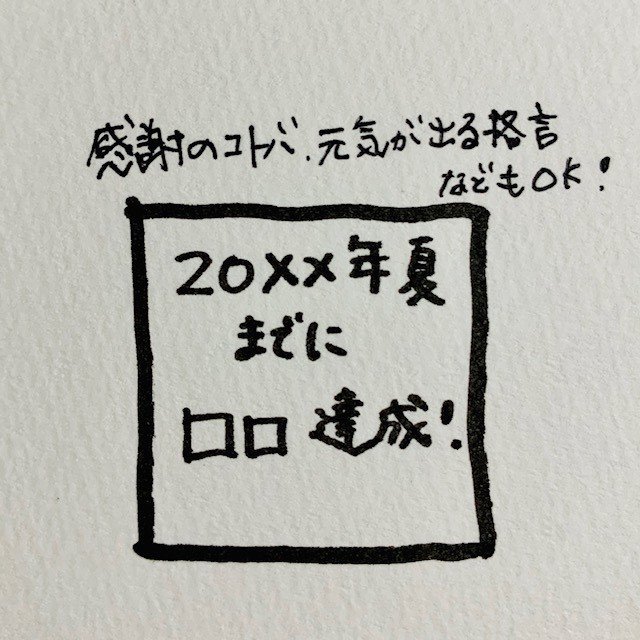 感謝のコトバ、元気が出る格言
などもOK!
20XX年夏
までに
□□達成!